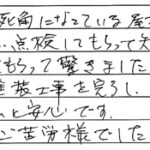 死角になっている屋
点検してもらって
もらって驚きました
装工事を完了し、
と安心です。
ご苦労様でした